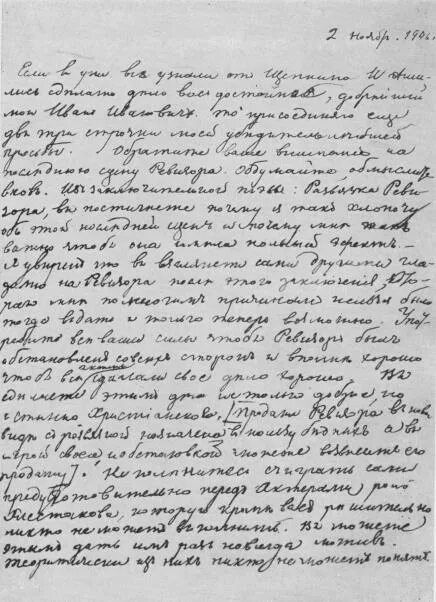 2 ноябр. 1846.
Если вы уже все узнали от Щепкина и
лись сделать дело вас достойное, добрейший
мой Иван Иванович. то присоединяю еще
две три строчки моей убедительнейшей
просьбы. Обратите ваше внимание на
последнюю сцену Ревизора. Обдумайте, обмыслите
вновь. Из заключительной пиэсы: Развязка Реви-
зора, вы постигнете почему я так хлопочу
об этой последней сцене и почему мне так
важно чтобы она имела полный эффект. —
Я уверен что вы взглянете сами другими гла-
зами на Ревизора после этого заключения, кото-
раго мне по многим причинам нельзя было
тогда выдать и только теперь возможно. Упо-
требите все ваши силы чтобы Ревизор был
обстановлен со всех сторон и вполне хорошо
чтобы все актеры сделали свое дело хорошо. Вы
сделаете этим дело не только доброе, но
истинно Христианское, [продажа Ревизора в новом
виде с развязкой назначена в пользу бедных а в
игрой своей и обстановкой можете возвысить его
продажу]. Не поленитесь сыграть сами
предуготовительно перед актерами роль
Хлестакова, которую кроме вас решительно
никто не может выполнить. Вы можете
этим дать им раз навсегда мотив.
Теоритически из них никто не может понять